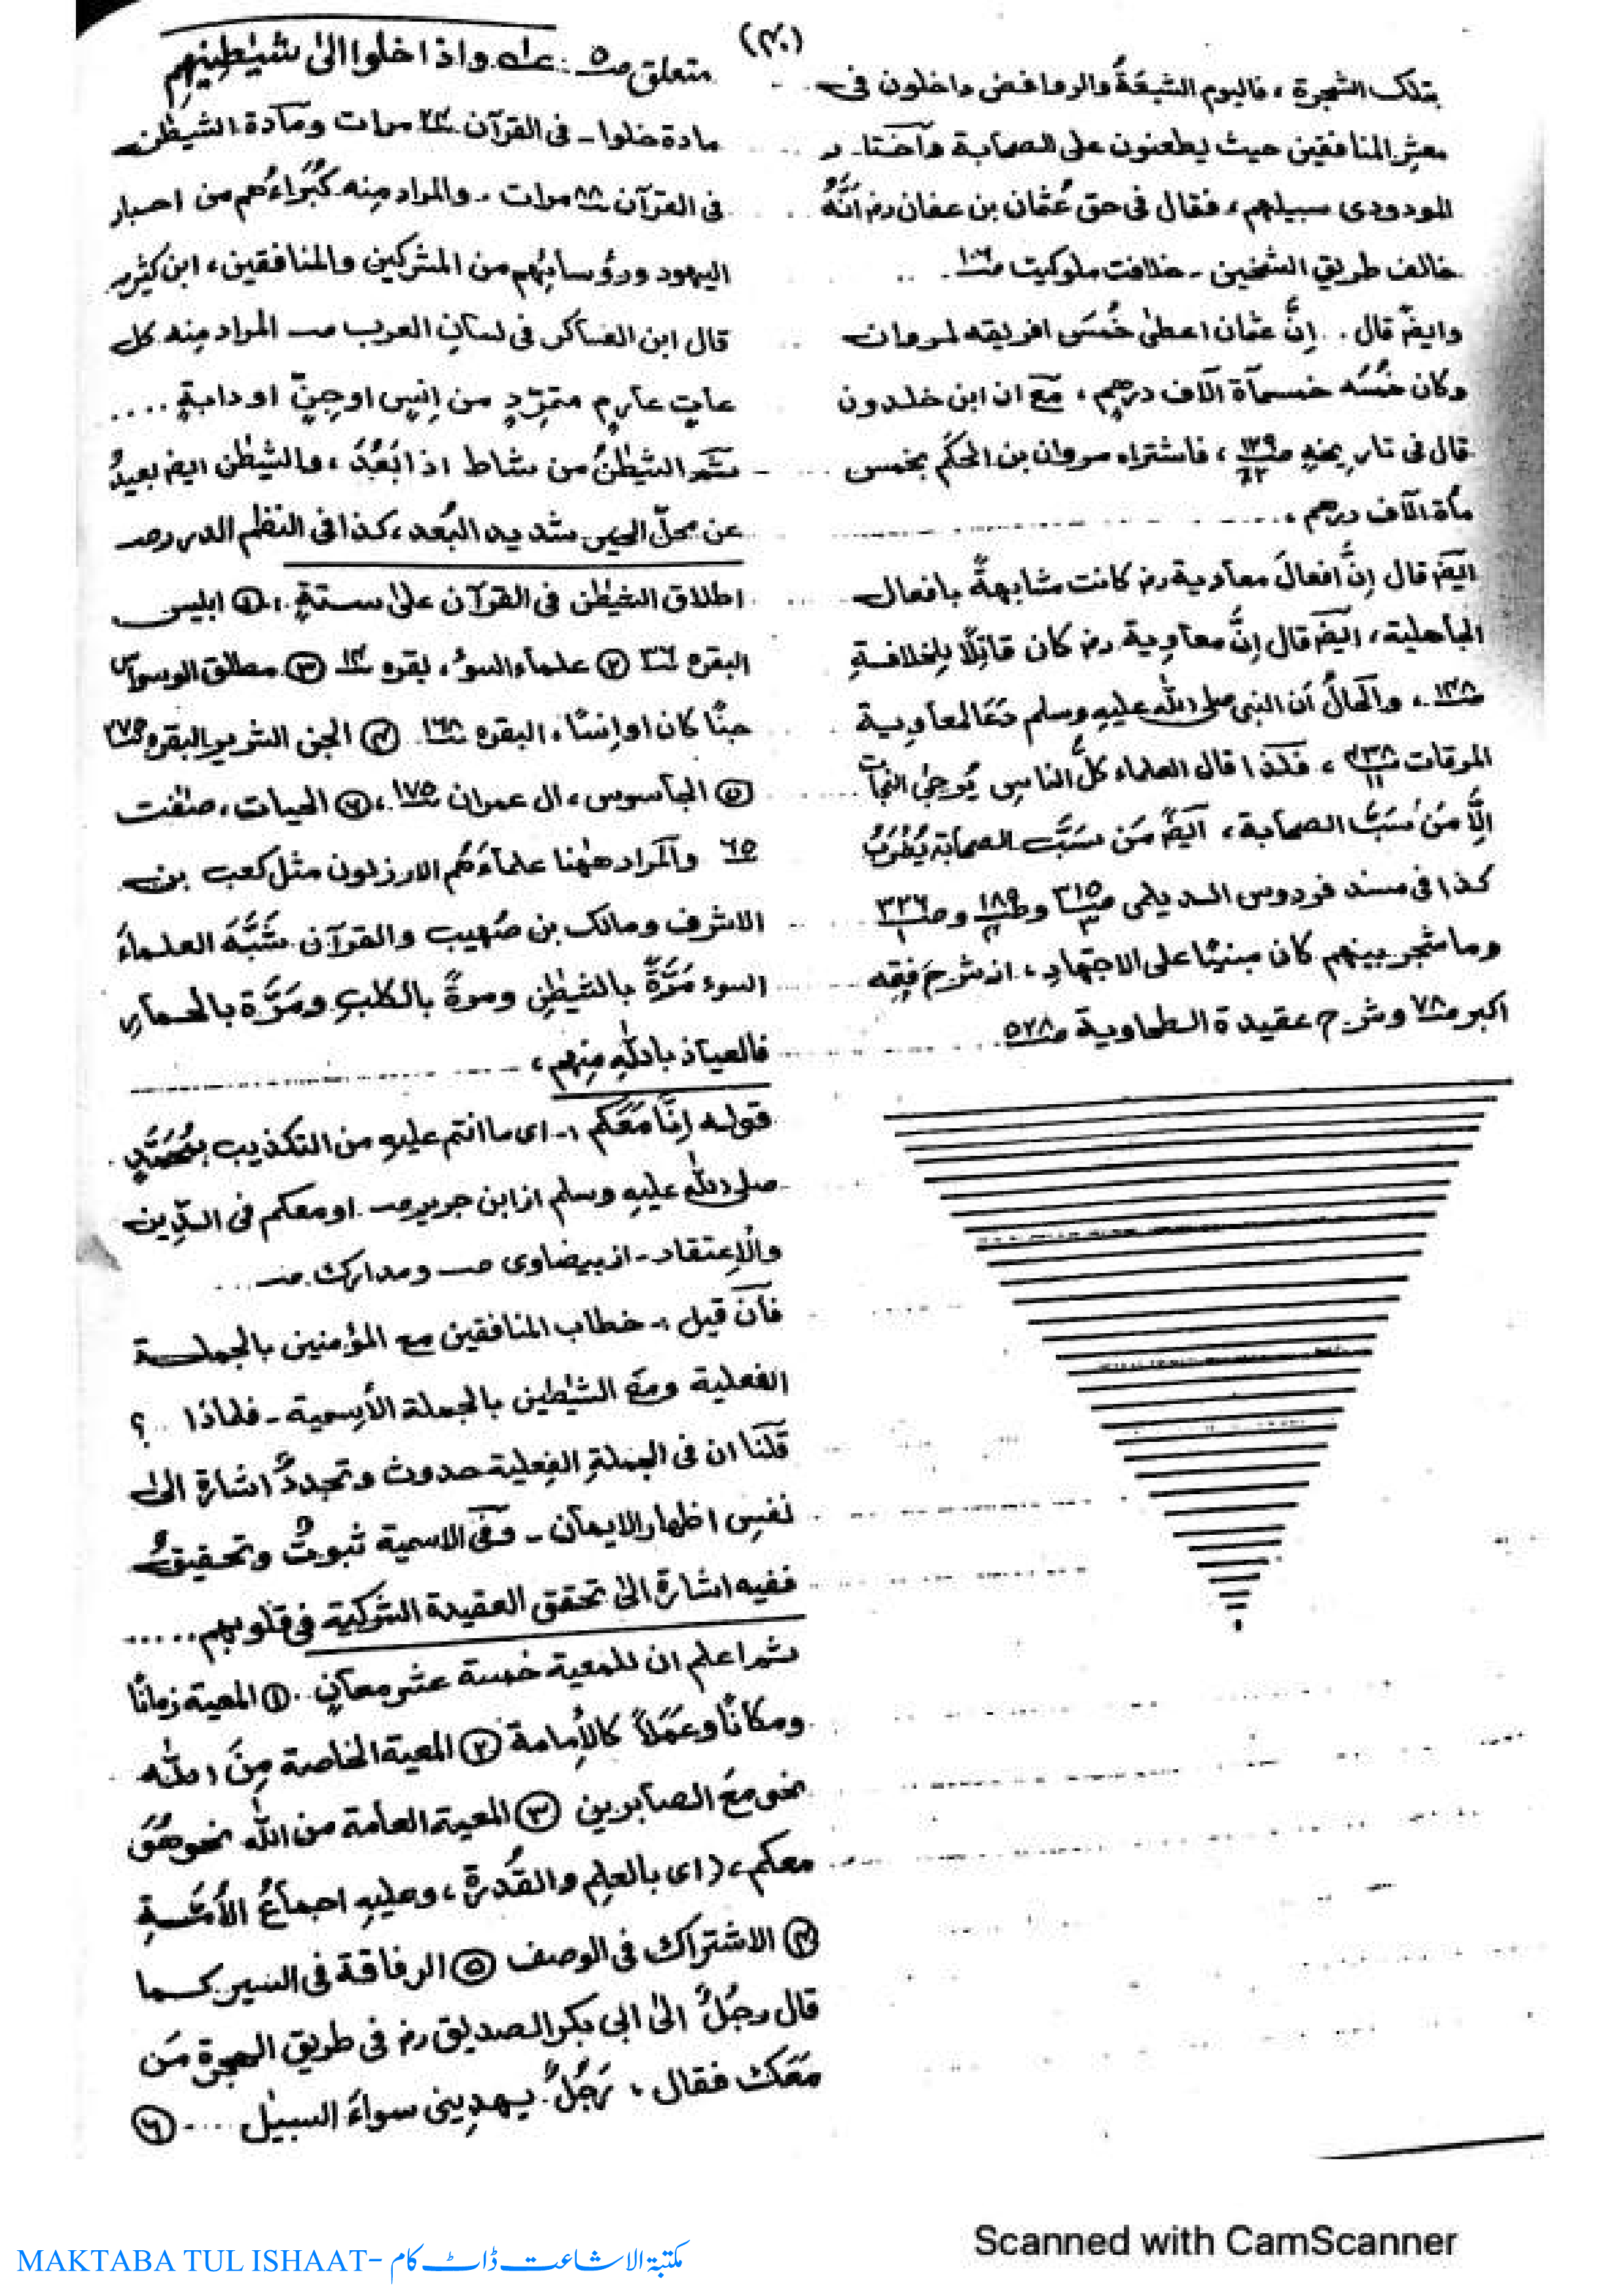 (۳۰)
بتلک الشجرة ، فالیوم الشیعَةُ والروافض داخلون فی
معشرِ المنافقین حیث یطعنون علی الصحابة وآختار
المودودی سبیلهم ، فقال فی حق عُثمان بن عفان رض اَنَّهُ
خالف طریق الشیخین ۔ خلافت ملوکیت صـ ۱۰۶
وایضً قال . . اِنَّ عثمان اعطیٰ خُمسَ افریقه لمروان
وکان خُمُسُه خمسمآة آلاف درهمٍ ، مَعَ ان ابن خلدون
قال فی تاریخهٖ صـ ۱۳۹/۲۲ ، فاشتراه مروان بن الحکَم بخمس
مأة آلاف درهم ،
ایضً قال اِنَّ افعالَ معاویة رض کانت مشابهةً بافعال
الجاهلیة ، ایضً قال اِنَّ معاوِیة رض کان قائِلًا لِخلافةِ
صـ ۱۳۸ ، والحالُ اَن النبی صلی الله علیهِ وسلم دَعَا لمعاوِیة
المرقات صـ ۴۳۸/۱۱ ، فَلذا قال العلماء کلُّ الناسِ یُرجیٰ النجآت
اِلَّا مَنْ سَبَّ الصحابة ، آیضً مَن سَبَّ الصحابة یُضْرَبُ
کذا فی مسند فردوس الدیلمی صـ ۳۱۵/۳ وصـ ۱۸۹ وصـ ۳۳۶/۱
وما شجر بینهم کان مبنیًا علی الاجتهادِ ، از شرح فِقه
اکبر صـ ۷۸ وشرح عقیدة الطحاویة صـ ۵۲۸
متعلق صـ ۵ : عـله واذا خلوا الیٰ شیٰطِینِهِم
مادة خلوا ۔ فی القرآن ۲۳ مرات ومآدة الشیطٰن
فی القرآن ۸۸ مرات ۔ والمراد مِنه کُبَرَاءُهم من احبار
الیهود ورؤسائِهم من المشرکین والمنافقین ، ابن کثیر
قال ابن العساکر فی لسانِ العرب صـ المراد مِنه کل
عاتٍ عآرمٍ متمرِّدٍ من اِنسٍ اوجِنٍّ او دابةٍ ....
ثمّ الشیطٰنُ من شاط اذا بَعُدَ ، والشیطٰن ایض بعیدٌ
عن محلّ الوحی شدید البُعد ، کذا فی النظم الدرر صـ
اطلاق الشیطٰن فی القرآن علیٰ ستةٍ :۔ ① ابلیس
البقره ۳۶ ② علمآء السوء ، بقره ۱۴ ③ مطلق الوسوآس
جنًا کان او اِنسًا ، البقره ۱۶۸ ④ الجن الشریر البقره ۲۷۵
⑤ الجآسوس ، ال عمران ۱۷۵ ، ⑥ الحیات ، صٰفٰت
۶۵ والمراد هٰهنا علماءَهُم الارذلون مثل کعب بن
الاشرف ومالک بن صُهیب والقرآن شَبَّهَ العلماءَ
السوء مَرَّةً بالشیطٰنِ ومرةً بالکلبِ ومَرَّة بالحمآرِ
فالعیآذ باللهِ مِنهم ،
قوله اِنَّا مَعَکم :۔ ای ما انتم علیهِ من التکذیب بِمُحَمَّدٍ
صلی الله علیهِ وسلم از ابن جریر صـ او معکم فی الدِّین
والاِعتقاد ۔ از بیضاوی صـ ومدارک صـ ...
فآن قیل :۔ خطاب المنافقین مع المؤمنین بالجملـة
الفعلیة ومَع الشیٰطین بالجملة الأسِمیة ۔ فلماذا ؟
قلنا ان فی الجملةِ الفِعلیة حدوث وتجددٌ اشارة الیٰ
نفسِ اظهار الایمآن ۔ وفی الاسمیة ثبوتٌ وتحقیقٌ
ففیه اشارة الیٰ تحقق العقیدة الشرکیة فی قلوبهم .....
ثمّ اعلم ان للمعیة خمسة عشر معآنٍ ① المعیة زمانًا
ومکانًا وعَمَلًا کالأمِامة ② المعیة الخاصة مِنَ الله
نحو مَعَ الصآبرین ③ المعیة العآمة من الله نحو هُوَ
معکم ، (ای بالعلم والقُدرة ، وعلیهِ اجمآعُ الأُمَّـةِ
④ الاشتراک فی الوصف ⑤ الرفاقة فی السیر کـما
قال رجُلٌ الیٰ ابی بکر الصدیق رض فی طریق الهجرة مَن
مَعَکَ فقال ، رَجُلٌ یهدِینی سواءَ السبیٰل .... ⑥
Scanned with CamScanner
MAKTABA TUL ISHAAT- مکتبۃ الاشاعت ڈاٹ کام